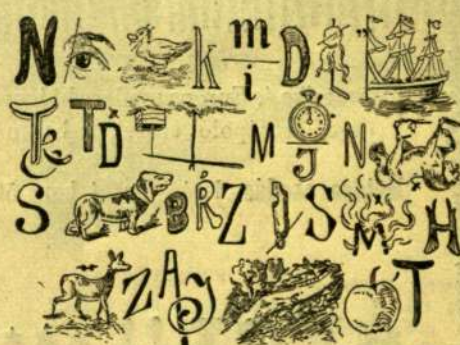 N k m i D L
T k T D M J N
S B R Z S M H
Z A J T